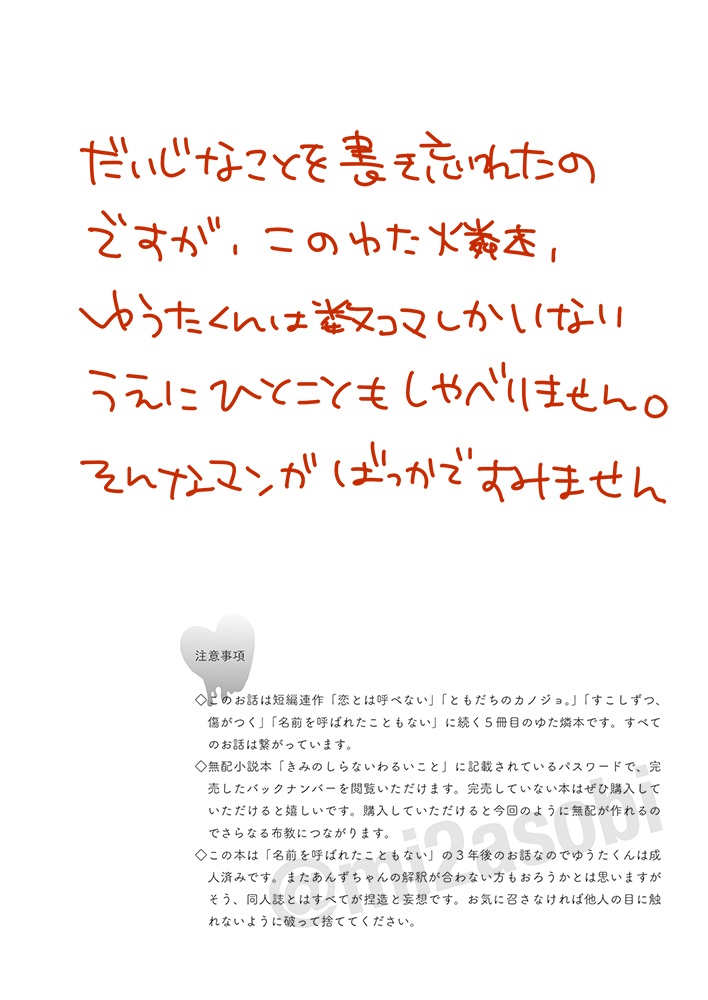 だいじなことを書き忘れたの
ですが、このゆた燐本、
ゆうたくんは数コマしかいない
うえにひとこともしゃべりません。
そんなマンガばっかですみません
注意事項
◇このお話は短編連作「恋とは呼べない」「ともだちのカノジョ。」「すこしずつ、
傷がつく」「名前を呼ばれたこともない」に続く５冊目のゆた燐本です。すべて
のお話は繋がっています。
◇無配小説本「きみのしらないわるいこと」に記載されているパスワードで、完
売したバックナンバーを閲覧いただけます。完売していない本はぜひ購入して
いただけると嬉しいです。購入していただけると今回のように無配が作れるの
でさらなる布教につながります。
◇この本は「名前を呼ばれたこともない」の３年後のお話なのでゆうたくんは成
人済みです。またあんずちゃんの解釈が合わない方もおろうかとは思いますが
そう、同人誌とはすべてが捏造と妄想です。お気に召さなければ他人の目に触
れないように破って捨ててください。
@mi2asobi